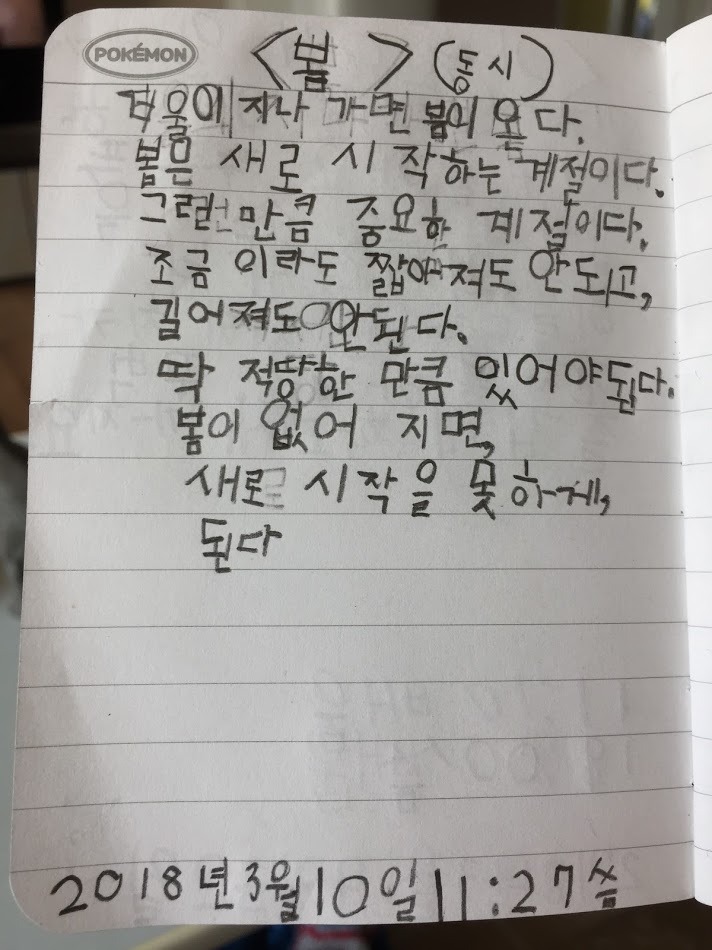 POKÉMON
<봄> (동시)
겨울이 지나 가면 봄이 온다.
봄은 새로 시작하는 계절이다.
그런만큼 중요한 계절이다.
조금 이라도 짧아져도 안되고,
길어져도 안된다.
딱 적당한 만큼 있어야된다.
봄이 없어 지면,
새로 시작을 못하게,
된다
2018년 3월 10일 11:27씀